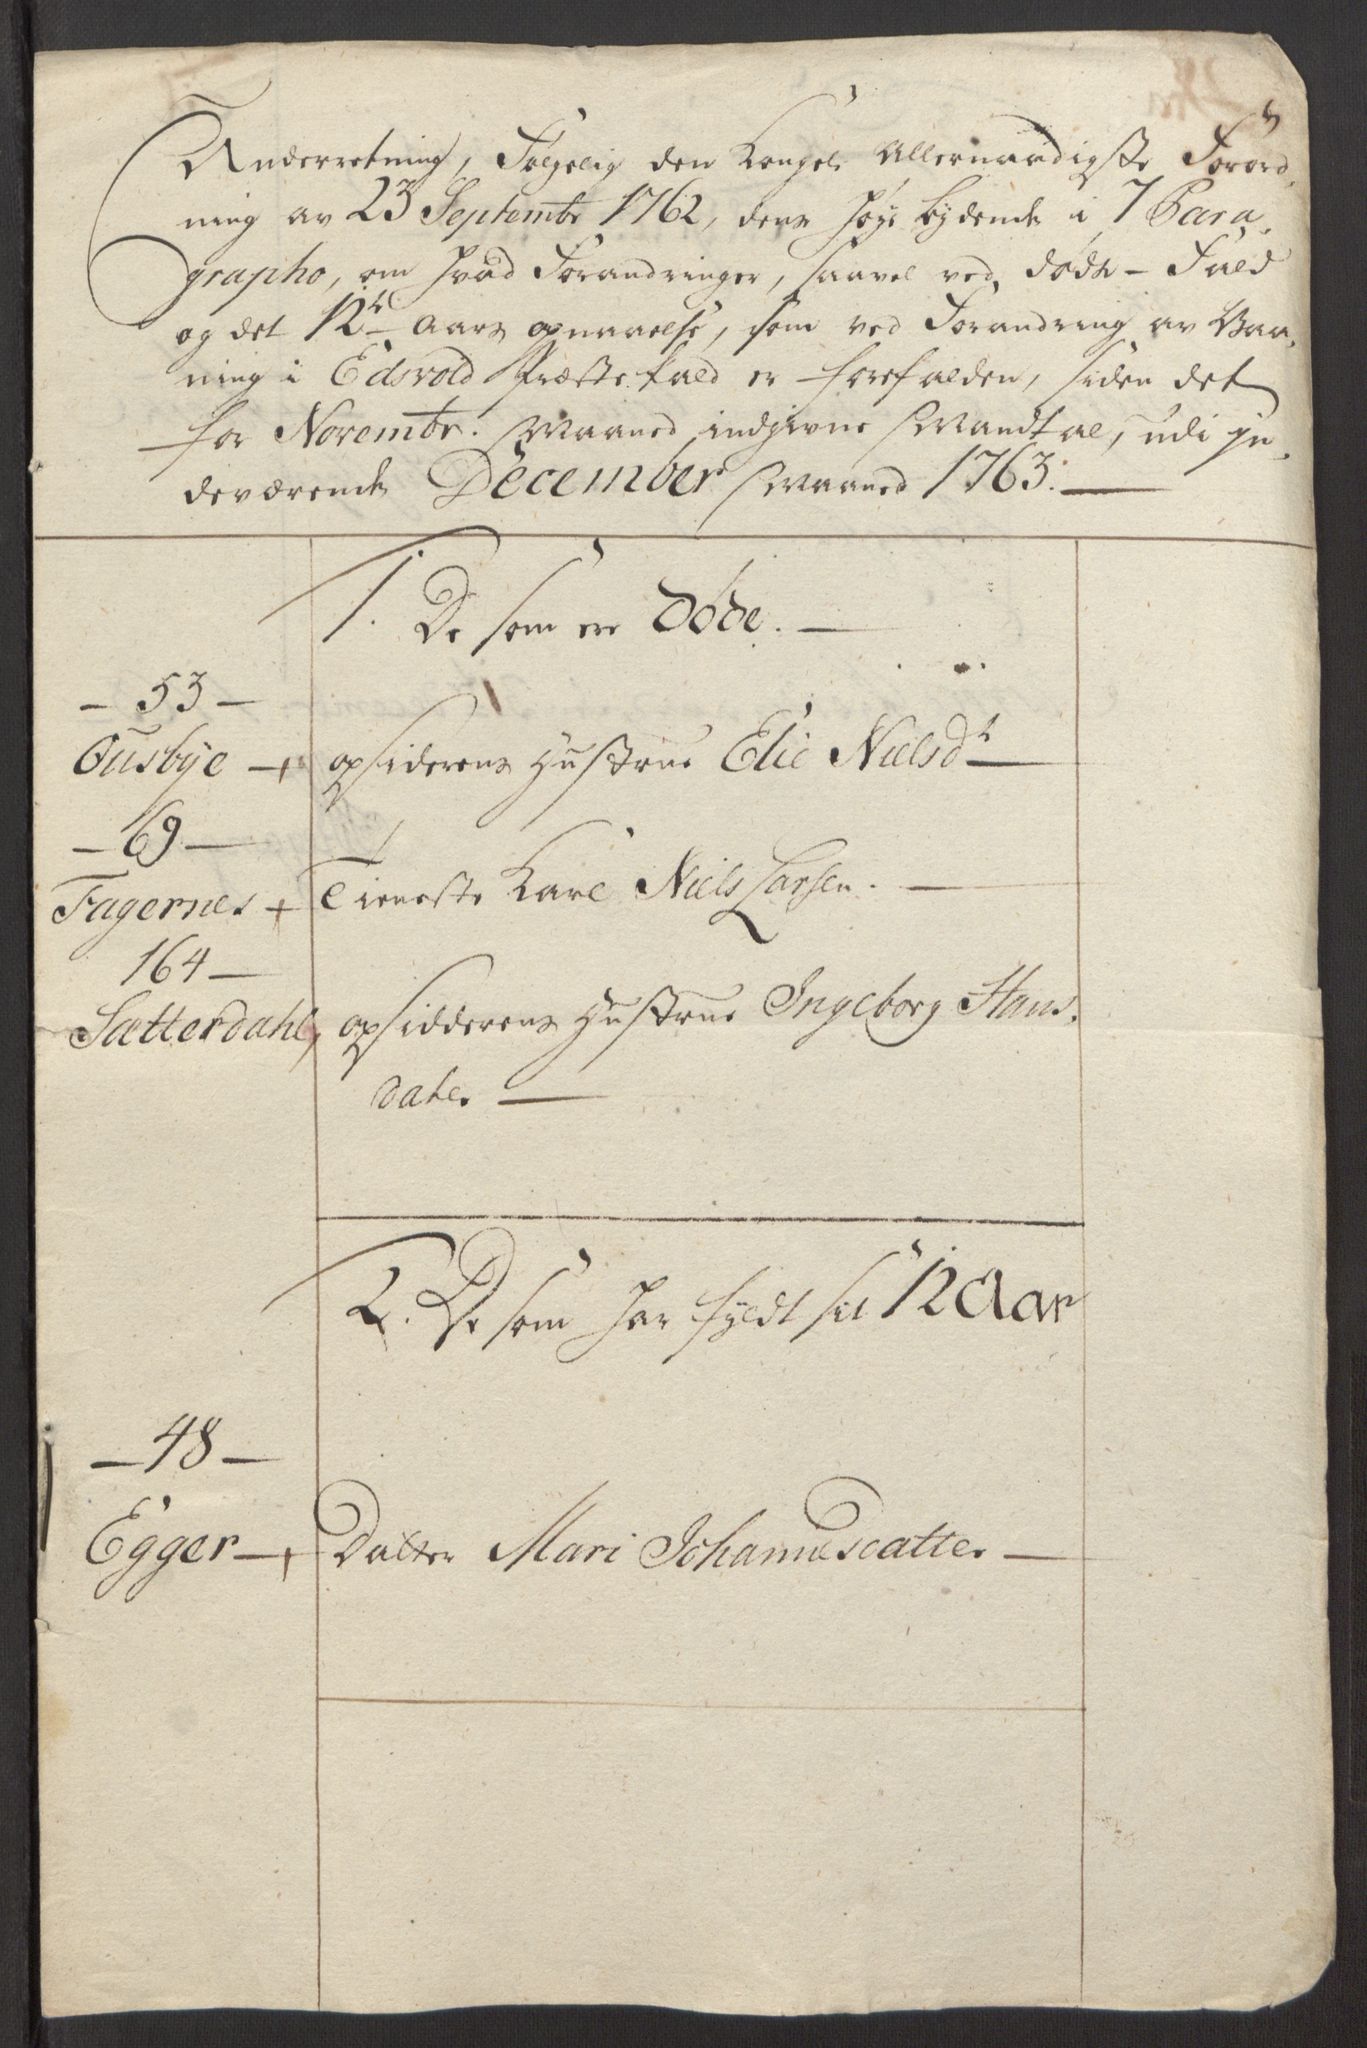 Underretning, Følgelig den Kongel. Allernaadigste Forord-
ning av 23 Septembr 1762, dens høye bydende i 7 Para-
grapho, om hvad Forandringer, saavel ved døds-Fald
og det 12te Aars opnaaelse, som ved Forandring av Vaa-
ning i Edsvold Præste-Kald er forefalden, siden det
for Novembr. Maaned indgivne Mandtal, udi in-
deværende December Maaned 1763.
1. De som ere døde.
53
Ousbye + opsiderens Hustrue Elie Nielsdt
69
Fagernes + Tieneste Karl Niels Larsen.
164
Sætterdahl, opsidderens Hustrue Ingeborg Hans-
dater.
2. De som har fyldt sit 12 Aar
48
Egger + Datter Mari Johannesdatter